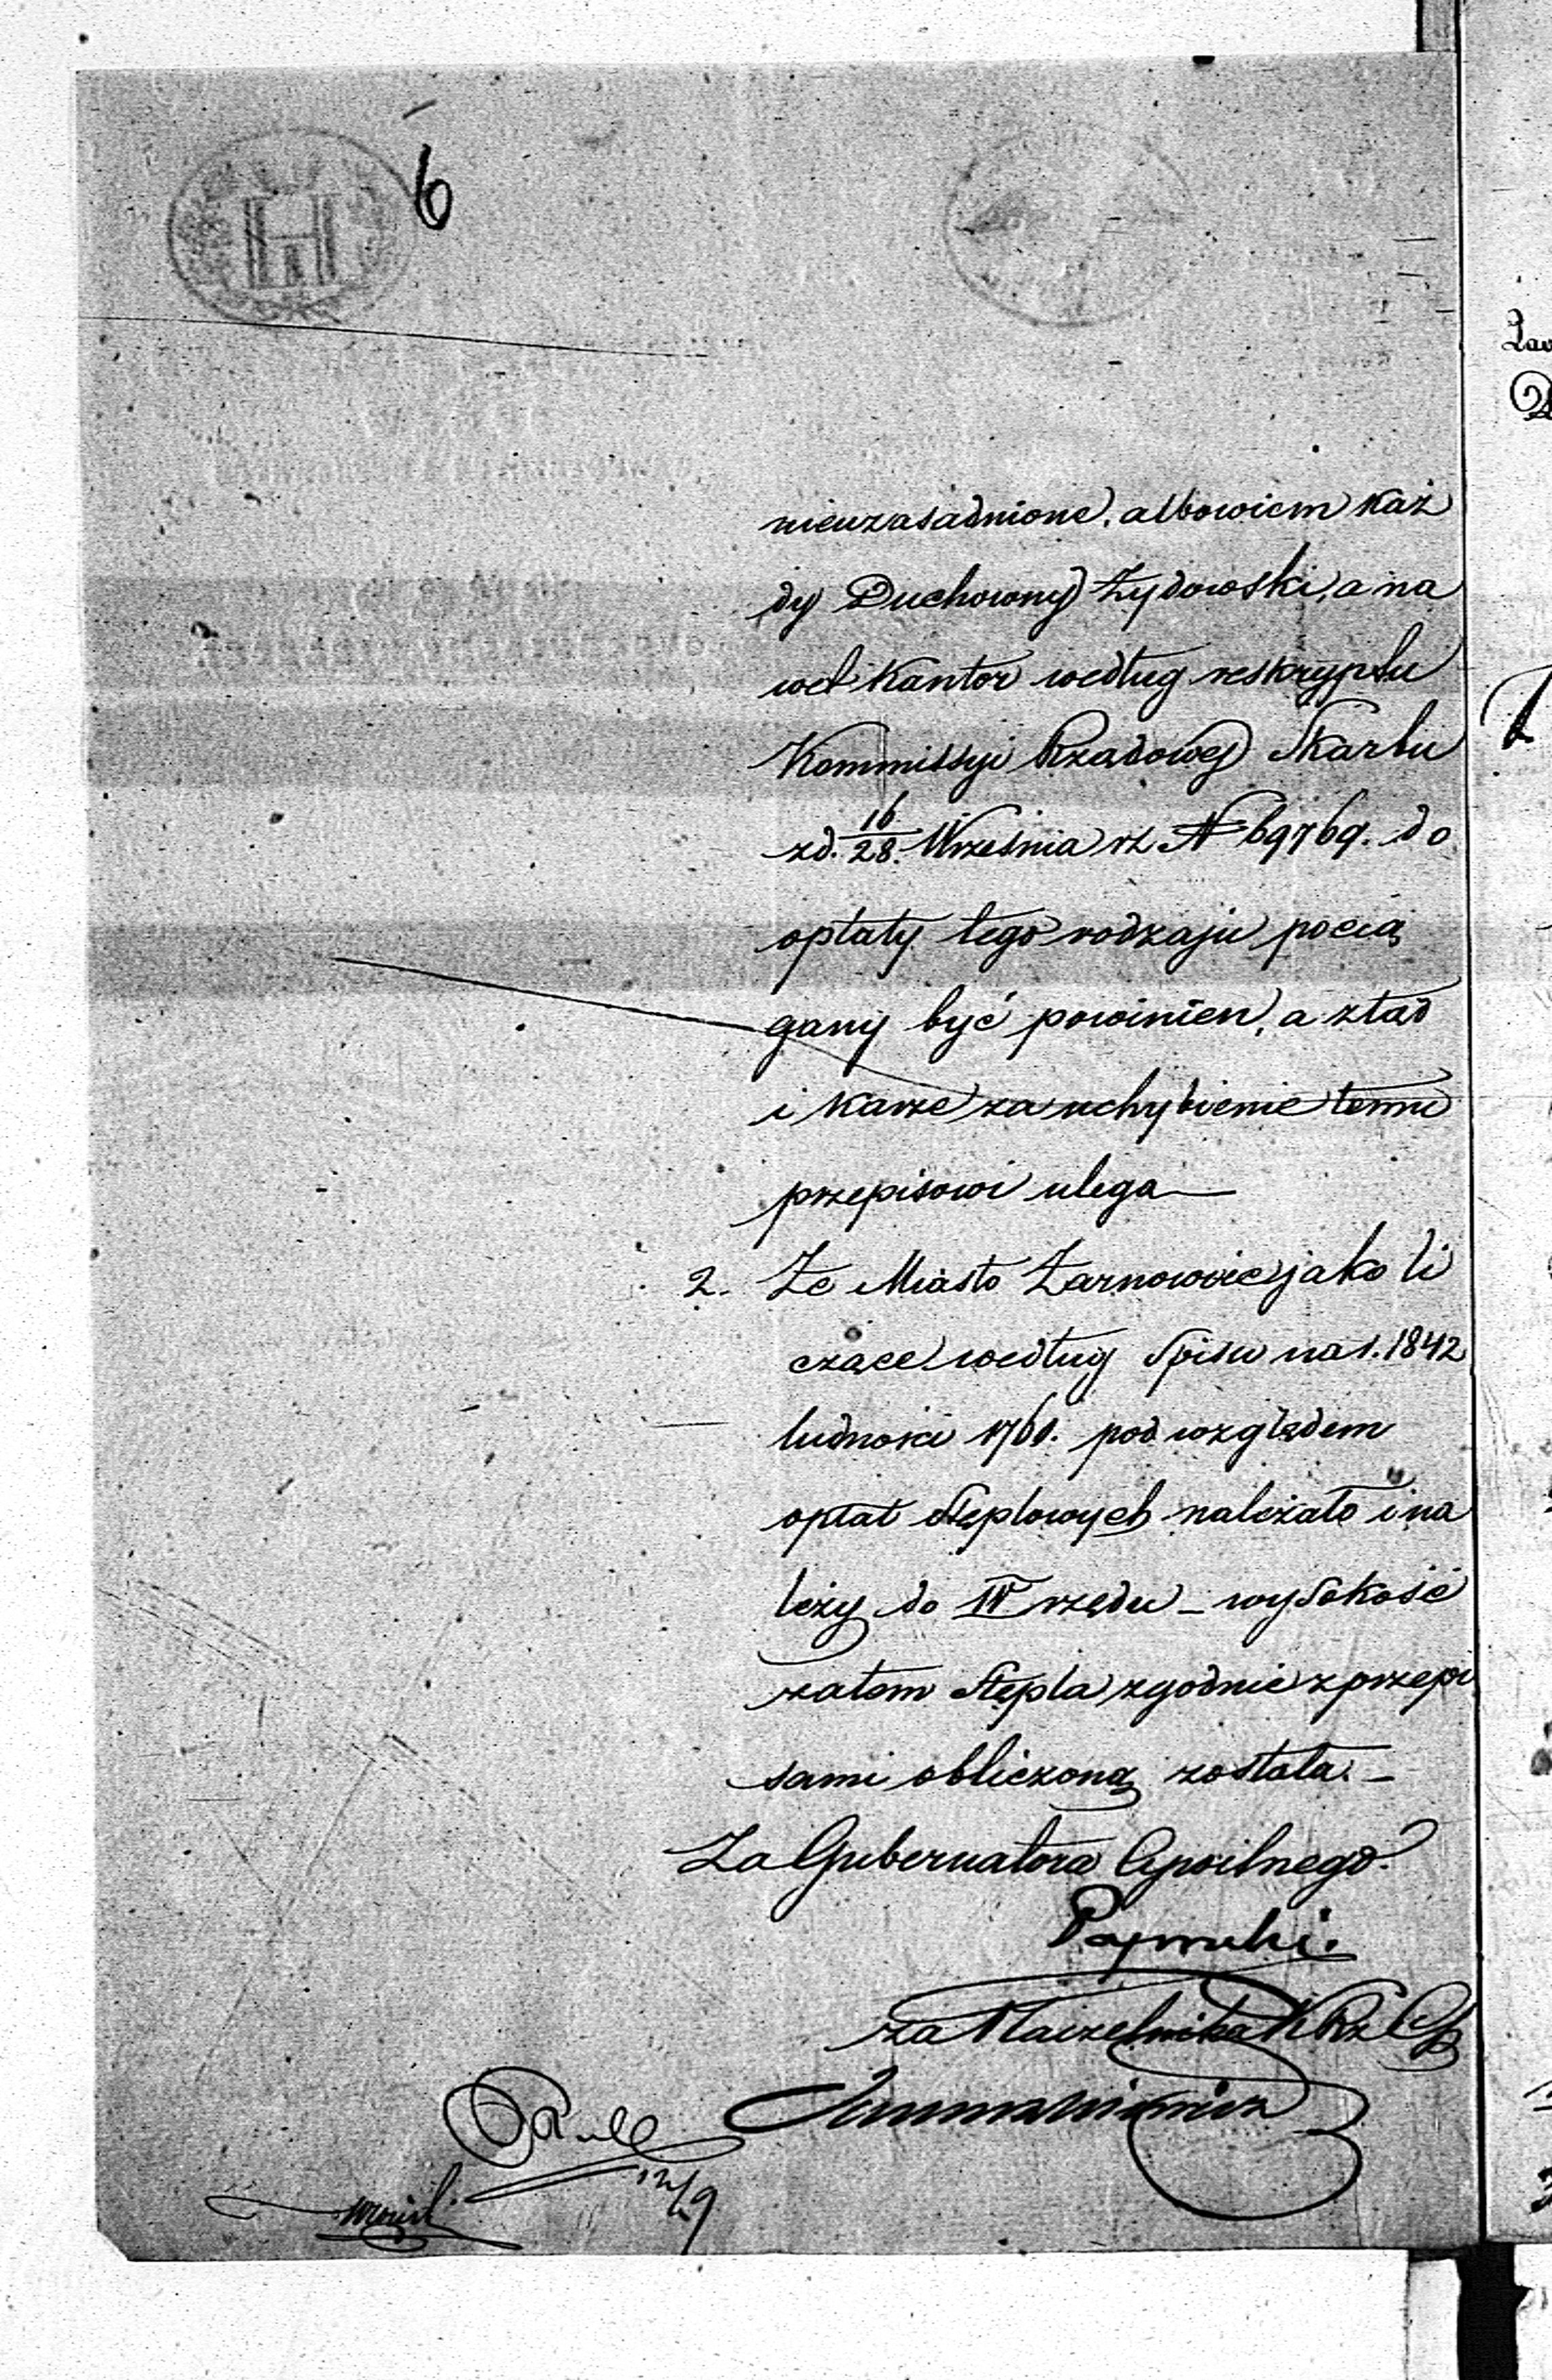 6
nieuzasadnione, albowiem każ
dy Duchowny Żydowski, a na
wet Kantor według reskryptu
Kommissyi Rządowej Skarbu
zd. 16/28. Września rz N 69769. do
opłaty tego rodzaju pocią
gany być powinien, a ztąd
i karze za uchybienie temu
przepisowi ulega—
2. Że Miasto Żarnowiec jako li
czące według Spisu na r. 1842
ludności 1761. pod względem
opłat stęplowych należało i na
leży do IV rzędu – wysokość
zatem Stępla zgodnie z przepi
sami obliczoną została. –
Za Gubernatora Cywilnego
za Naczelnika
12/9